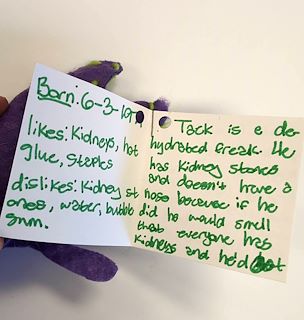 Born: 6-3-19
likes: Kidneys, hot
glue, steples
dislikes: Kidney st
ones, water, bubble
gum.
Tack is e de-
hydrated freak. He
has kidney stones
and doesn't have a
nose because if he
did he would smell
that everyone has
kidneys and he'd eat